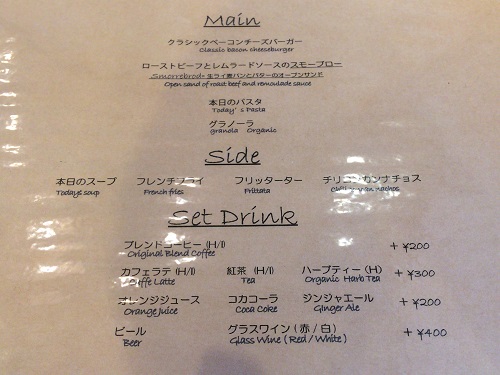 Main
クラシックベーコンチーズバーガー
Classic bacon cheeseburger
ローストビーフとレムラードソースのスモーブロー
Smorrebrod- 生ライ麦パンとバターのオープンサンド
Open sand of roast beef and remoulade sauce
本日のパスタ
Today's Pasta
グラノーラ
granola Organic
Side
本日のスープ フレンチフライ フリッターター チリコンカンナチョス
Todays soup French fries Frittata nachos
Set Drink
ブレンドコーヒー (H/I) + ¥200
Original Blend Coffee
カフェラテ (H/I) 紅茶 (H/I) ハーブティー (H) + ¥300
Caffe Latte Tea Organic Herb Tea
オレンジジュース コカコーラ ジンジャエール + ¥200
Orange Juice Coca Coke Ginger Ale
ビール グラスワイン ( 赤 / 白 ) + ¥400
Beer Glass Wine ( Red / White )